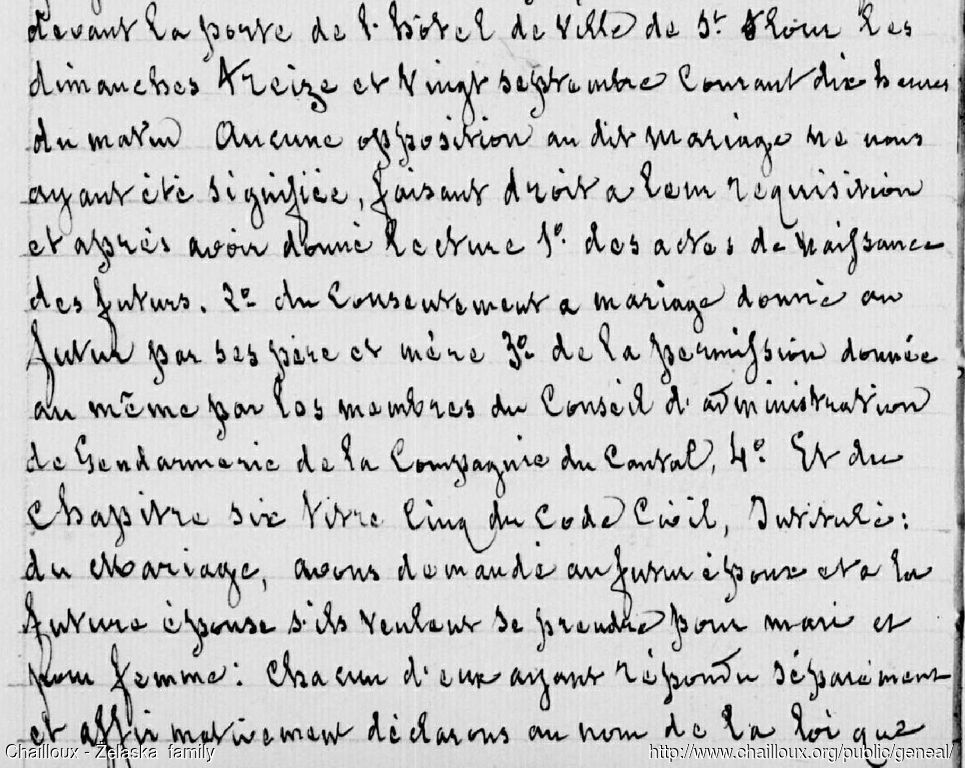 devant la porte de l'hôtel de ville de St. Flour les
dimanches treize et vingt septembre Courant dix heures
du matin Aucune opposition au dit mariage ne nous
ayant été signifiée, faisant droit a leur requisition
et après avoir donné lecture 1o. des actes de Naissance
des futurs. 2o du Consentement a mariage donné au
futur par ses père et mère 3o. de la permission donnée
au même par les membres du Conseil d'administration
de Gendarmerie de la Compagnie du Cantal, 4o. Et du
Chapitre six titre Cinq du Code Civil, Intitulé:
du Mariage, avons demandé au futur époux et a la
future épouse s'ils veulent se prendre pour mari et
pour femme: Chacun d'eux ayant répondu séparément
et affirmativement déclarons au nom de la loi que
Chailloux - Zelaska family
http://www.chailloux.org/public/geneal/